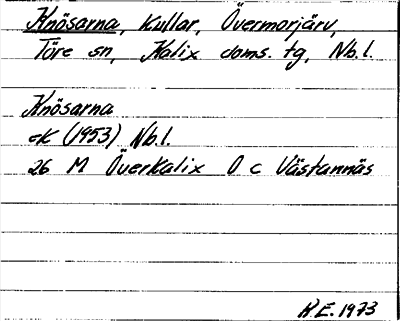 Knösarna, kullar, Övermorjärv,
Töre sn, Kalix doms. tg, Nb.l.
Knösarna
ek (1953) Nb.l.
26 M Överkalix O c Västannäs
R.E. 1973